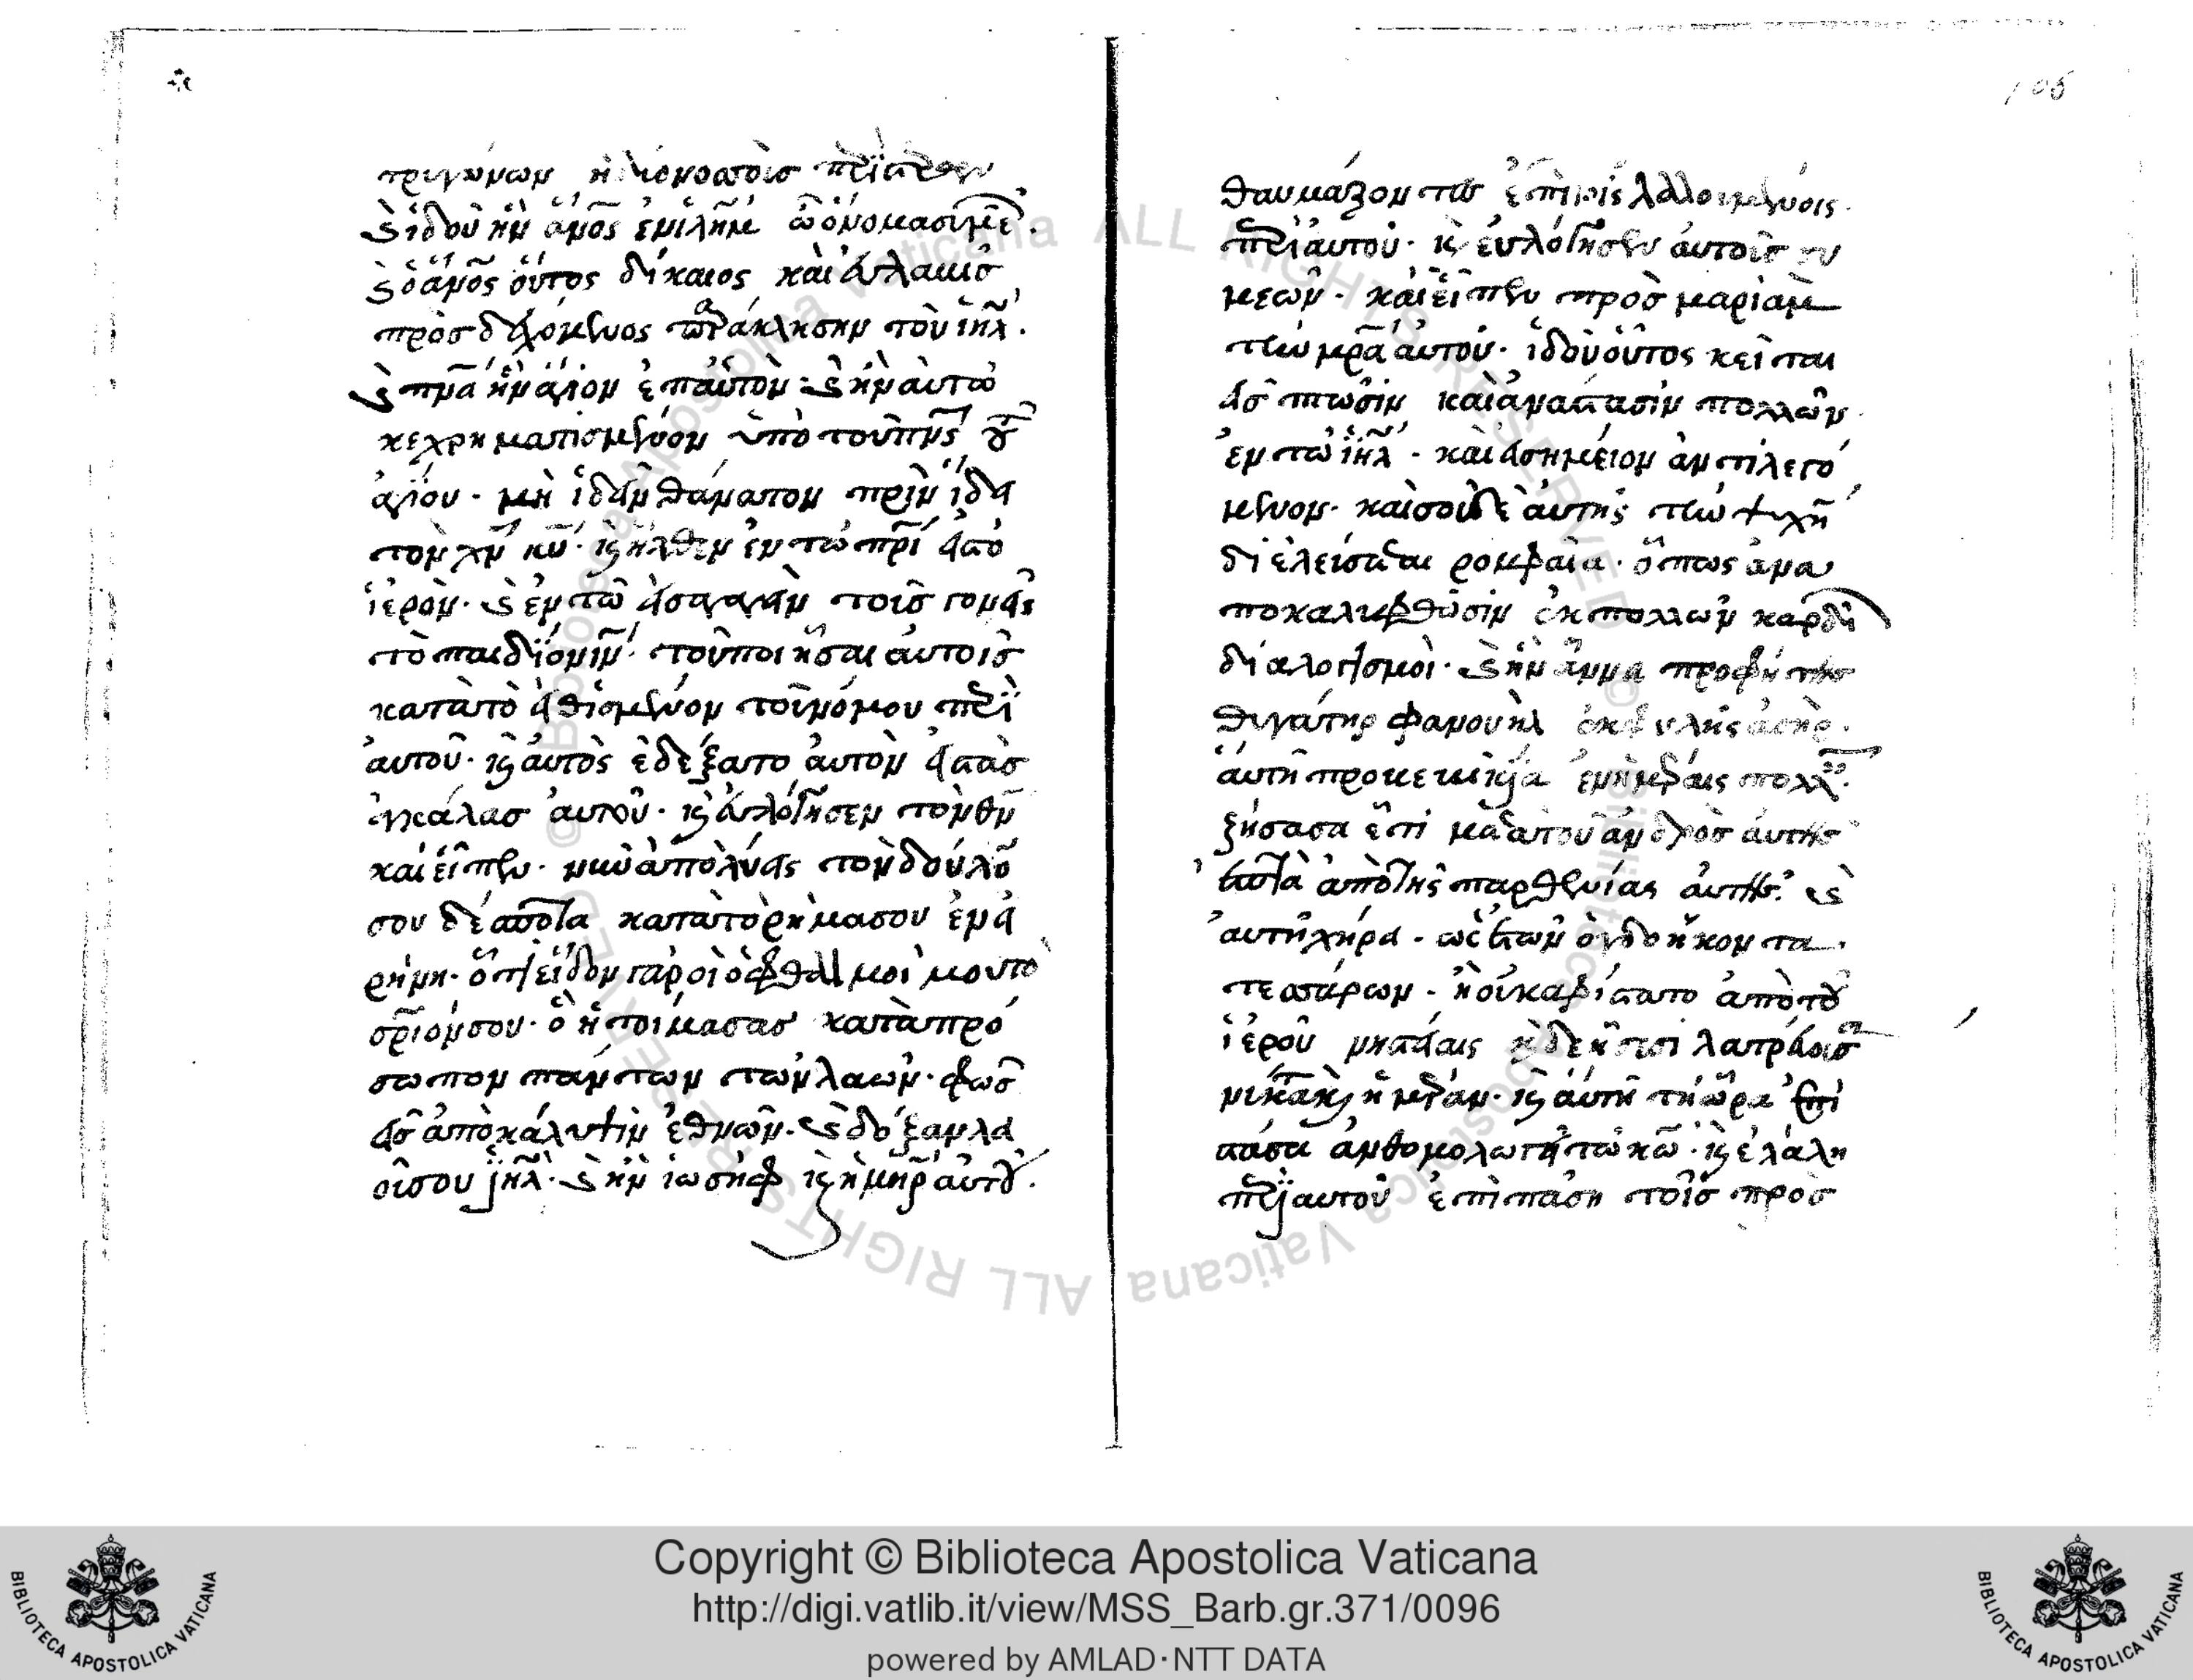 τρυγόνων ἢ δύο νοσσοὺς περιστερῶν
καὶ ἰδοὺ ἦν ἄνος ἐν ιλημ ὧ ὄνομα συμεών.
καὶ ὁ ἄνος οὗτος δίκαιος καὶ εὐλαβὴσ
πρὸσδεχόμενος παράκλησιν τοῦ ιηλ.
καὶ πνα ἦν ἅγιον ἐπ αὐτὸν· καὶ ἦν αὐτῶ
κεχρηματισμένον ὑπὸ τοῦ πνς τοῦ
ἁγίου· μὴ ἰδεῖν θάνατον πρὶν ἴδη
τὸν χν κυ· καὶ ἦλθεν ἐν τῶ πνι εἰς τὸ
ἱερὸν· καὶ ἐν τῶ εἰσαγαγεῖν τοὺς γονεῖς
τὸ παιδίον ιν· τοῦ ποιῆσαι αὐτοὺσ
κατὰ τὸ εἰθισμένον τοῦ νόμου περὶ
αὐτοῦ· καὶ αὐτὸς ἐδέξατο αὐτὸν εἰς τὰσ
ἀγκάλασ αὐτοῦ· καὶ εὐλόγησεν τὸν θν
καὶ εἶπεν· νῦν ἀπολύεις τὸν δοῦλόν
σου δέσποτα κατὰ τὸ ρῆμα σου ἐν εἰ
ρήνη· ὅτι εἶδον γὰρ οἱ ὀφθαλμοί μου τὸ
σριόν σου· ὃ ἡτοίμασασ κατὰ πρό
σωπον πάντων τῶν λαῶν· φῶσ
εἰσ ἀποκάλυψιν ἐθνῶν· καὶ δόξαν λα
οῦ σου ιηλ· καὶ ἦν ἰωσὴφ καὶ ἡ μηρ αὐτοῦ.
106
θαυμάζοντες ἐπὶ τοῖς λαλουμένοις
περὶ αὐτοῦ· καὶ εὐλόγησεν αὐτοὺσ συ
μεών· καὶ εἶπεν πρὸσ μαριὰμ
τὴν μρα αὐτοῦ· ἰδοὺ οὗτος κεῖται
εἰσ πτῶσιν καὶ ἀνάστασιν πολλῶν
ἐν τῶ ιηλ· καὶ εἰσ σημεῖον ἀντιλεγό
μενον· καὶ σοῦ δὲ αὐτῆς τὴν ψυχὴν
διελεύσεται ρομφαία· ὅπως ἂν ἀ
ποκαλυφθῶσιν ἐκ πολλῶν καρδιῶν
διαλογισμοὶ· καὶ ἦν ἄννα προφῆτις
θυγάτηρ φανουὴλ ἐκ φυλῆς ἀσήρ.
αὕτη προβεβηκυῖα ἐν ἡμέραις πολλαῖς.
ζήσασα ἔτη μετὰ τοῦ ἀνδρὸσ αὐτῆσ
ἑπτὰ ἀπὸ τῆς παρθενίας αὐτῆσ· καὶ
αὐτὴ χήρα· ὡς ἐτῶν ὀγδοήκοντα
τεσσάρων· ἣ οὐκ ἀφίστατο ἀπὸ τοῦ
ἱεροῦ νηστείαις καὶ δεήσεσι λατρεύουσα
νύκτα καὶ ἡμέραν· καὶ αὕτη τῆ ὥρα ἐπι
στᾶσα ἀνθομολογεῖτο τῶ κω· καὶ ἐλάλη
περὶ αὐτοῦ ἐπὶ πᾶση τοῖσ προσ
Copyright © Biblioteca Apostolica Vaticana
http://digi.vatlib.it/view/MSS_Barb.gr.371/0096
powered by AMLAD·NTT DATA
BIBLIOTECA APOSTOLICA VATICANA
BIBLIOTECA APOSTOLICA VATICANA